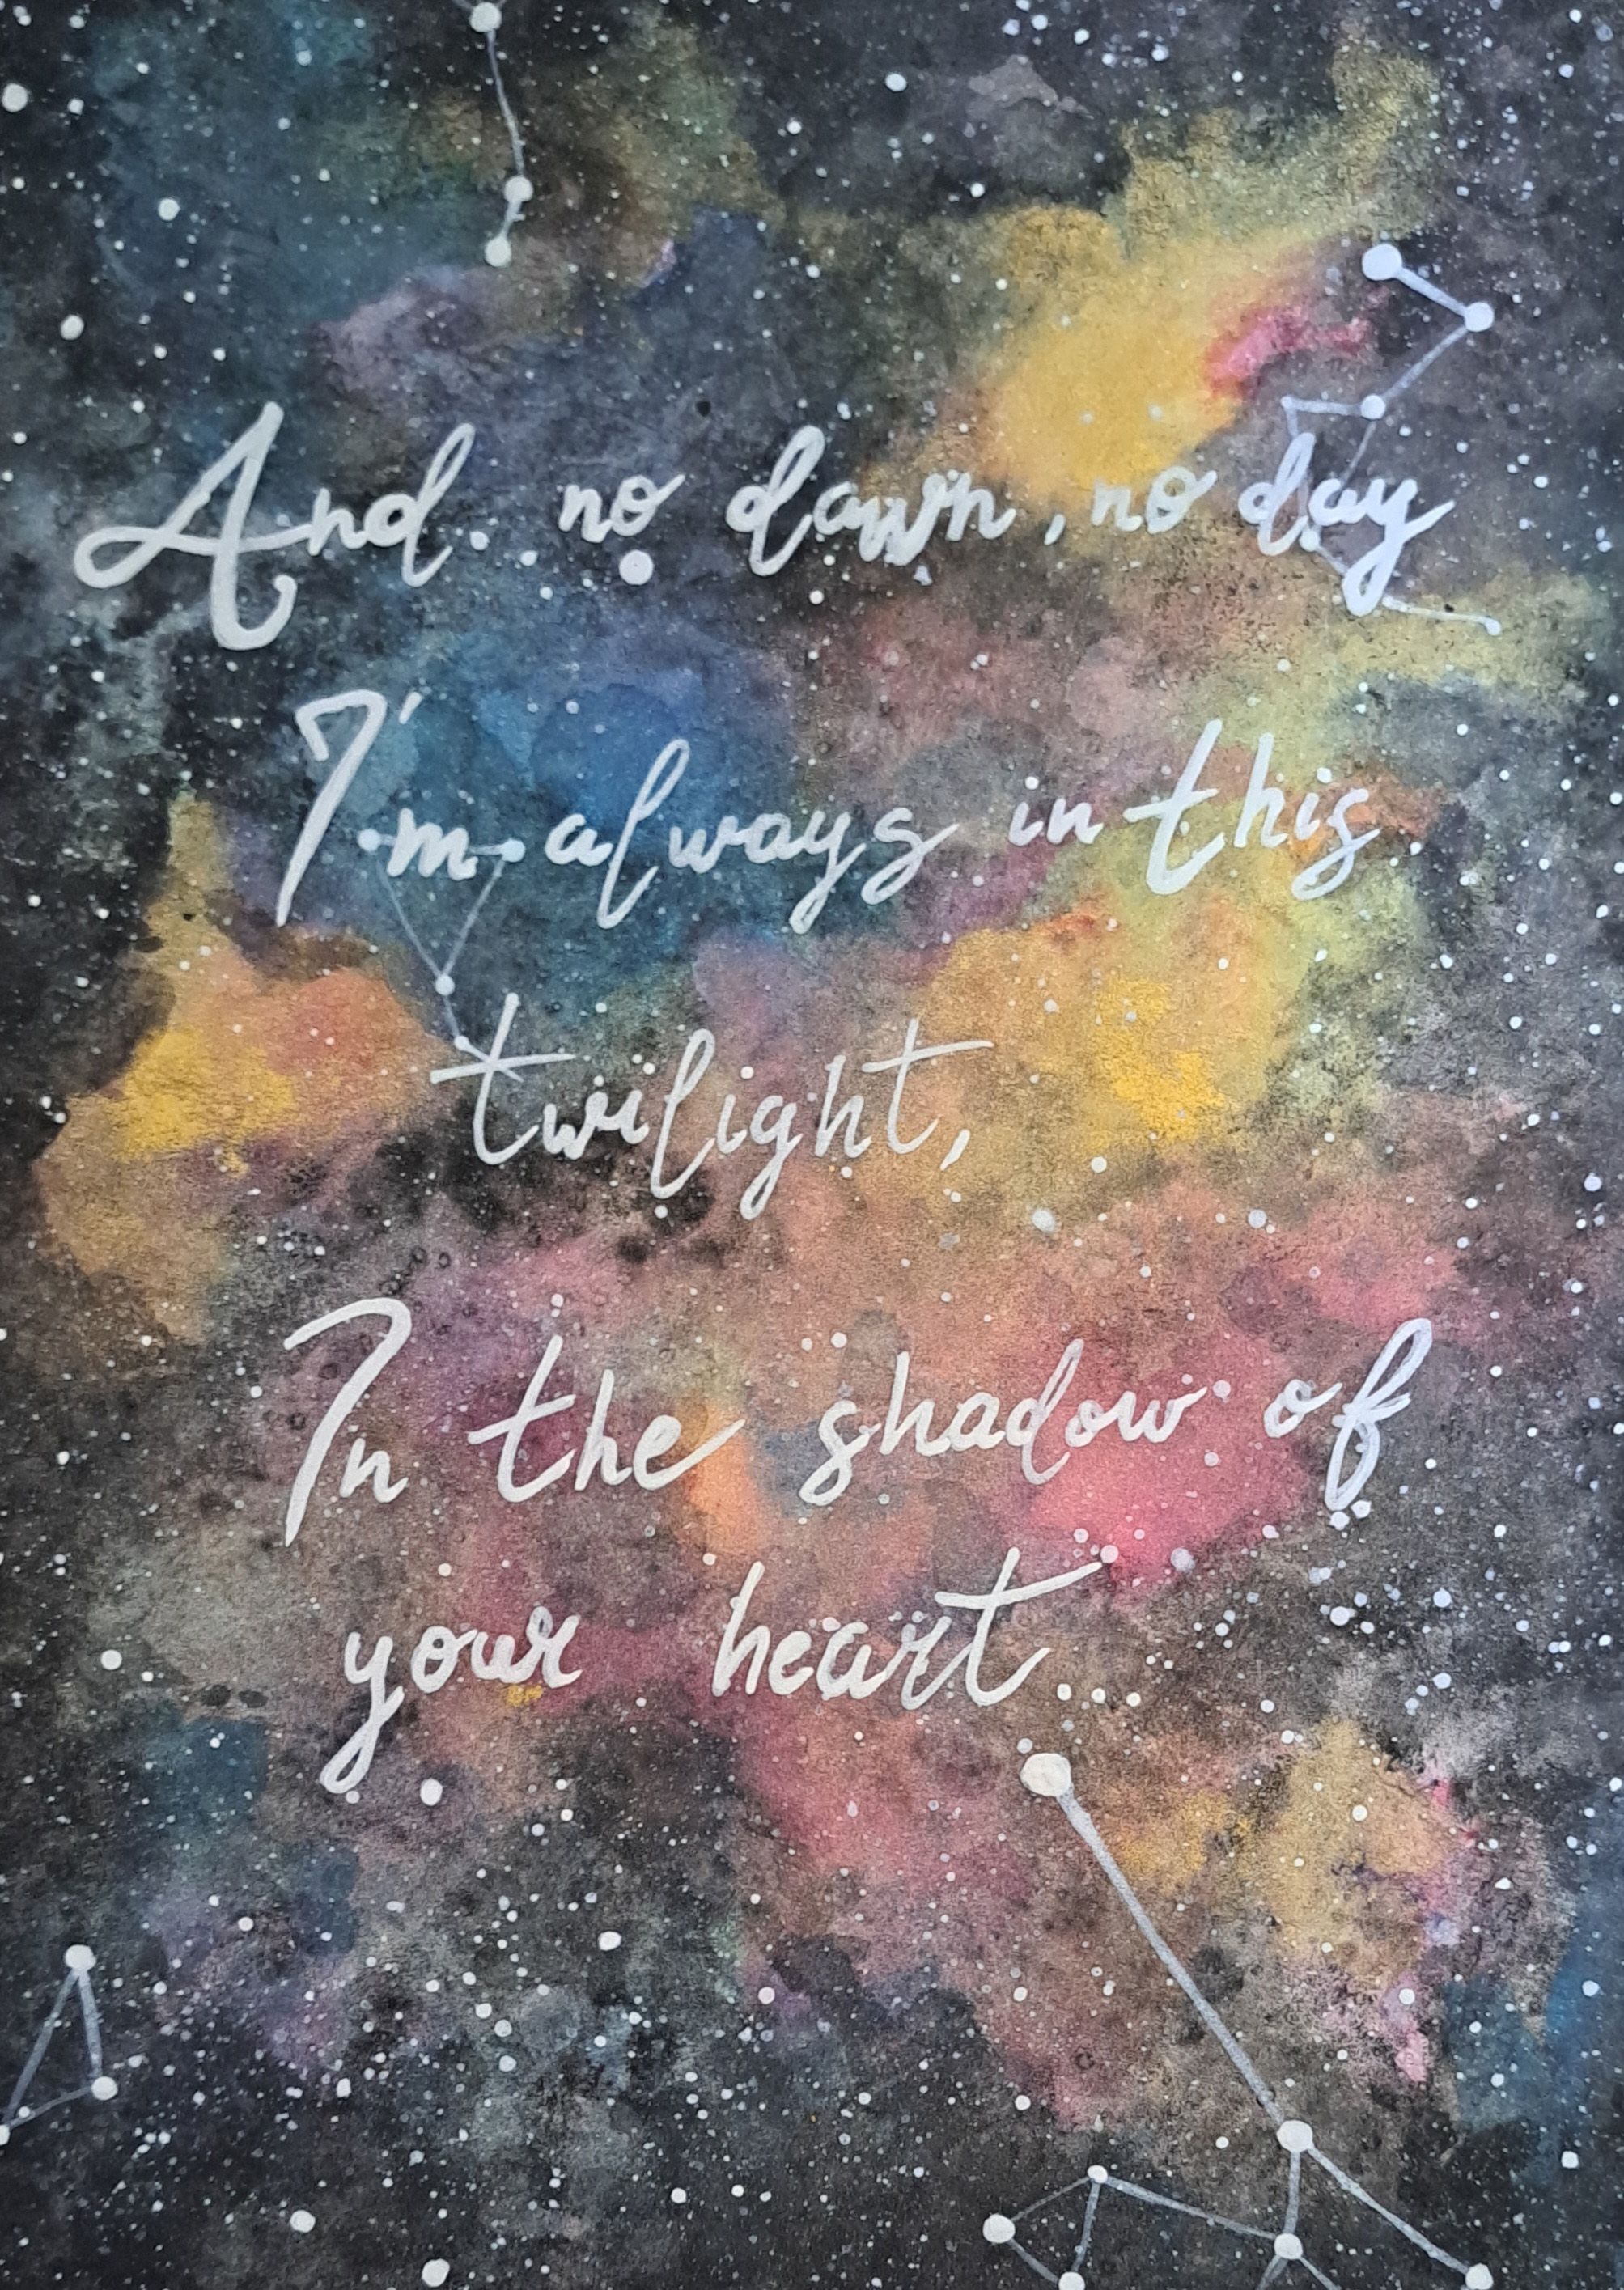 And no dawn, no day
I'm always in this
twilight,
In the shadow of
your heart